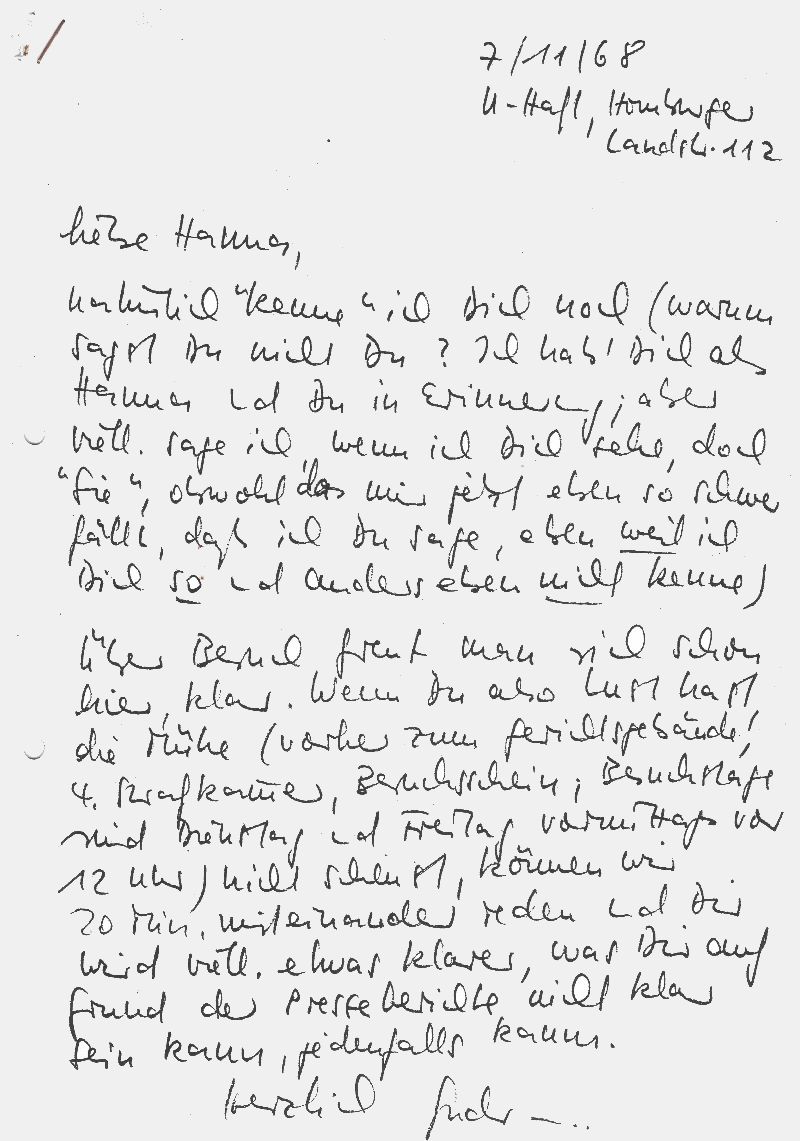 7/11/68
U-Haft, Homburger
Landstr. 112
liebe Hanna,
natürlich "kenne" ich Dich noch (warum
sagst Du nicht Du? Ich hab' Dich als
Hanna und Du in Erinnerung; aber
viell. sage ich, wenn ich Dich sehe, doch
"Sie", obwohl das mir jetzt eben so schwer
fällt, daß ich Du sage, eben weil ich
Dich so und anders eben nicht kenne)
Über Besuch freut man sich schon
hier, klar. Wenn Du also Lust hast,
die Mühe (vorher zum Gerichtsgebäude!
4. Strafkam̅er, Besuchsschein; Besuchstage
sind Dienstag und Freitag vormittags vor
12 Uhr) nicht scheust, können wir
20 Min. miteinander reden und Dir
wird viell. etwas klarer, was Dir auf
Grund der Presseberichte nicht klar
sein kann, jedenfalls kaum.
Herzlich